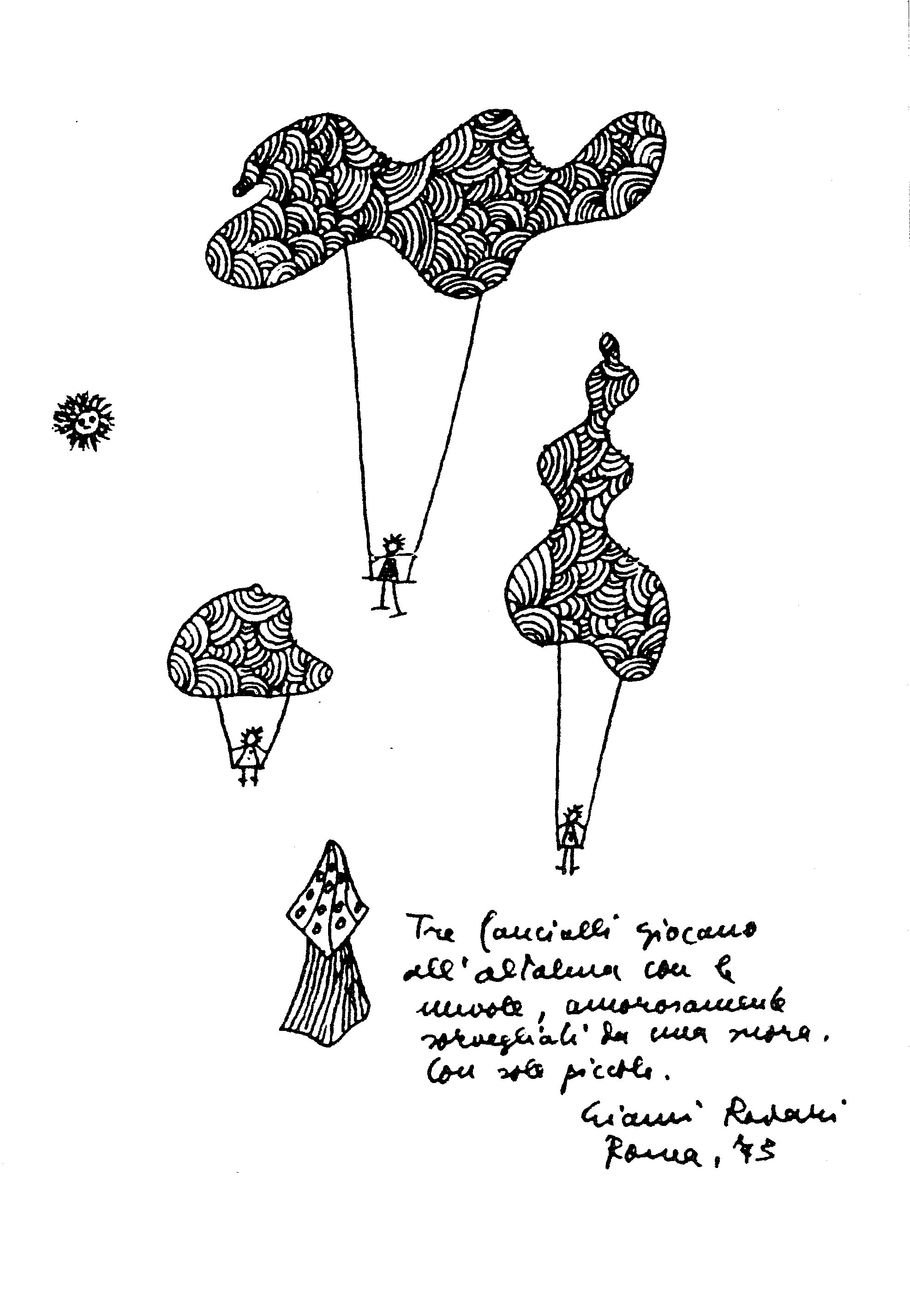 Tre fanciulli giocano
all'altalena con le
nuvole, amorosamente
sorvegliati da una suora.
Con sole piccolo.
Gianni Rodari
Roma, '75